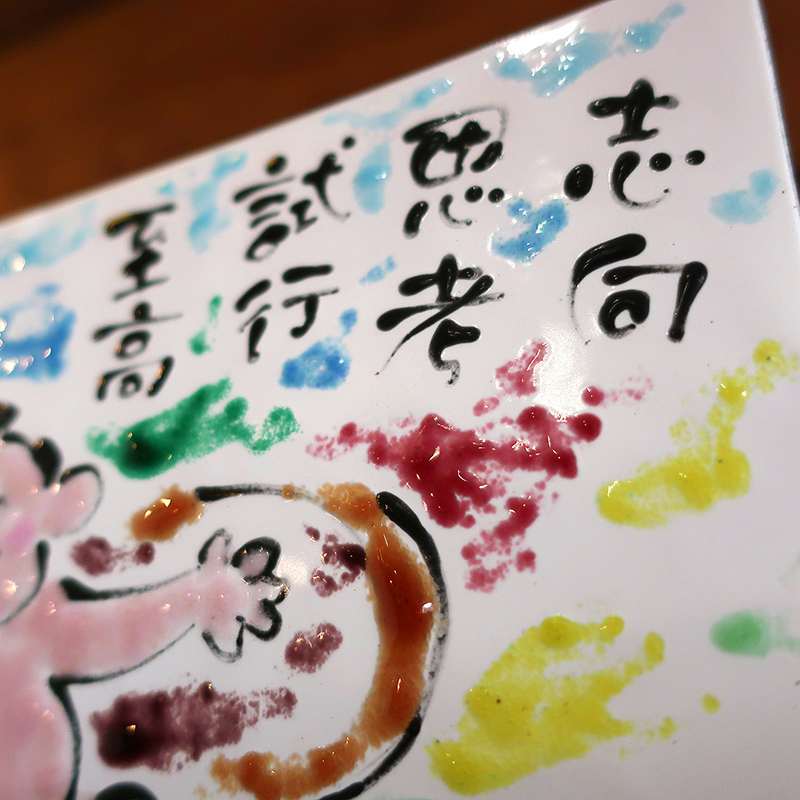 志向
思考
試行
至高